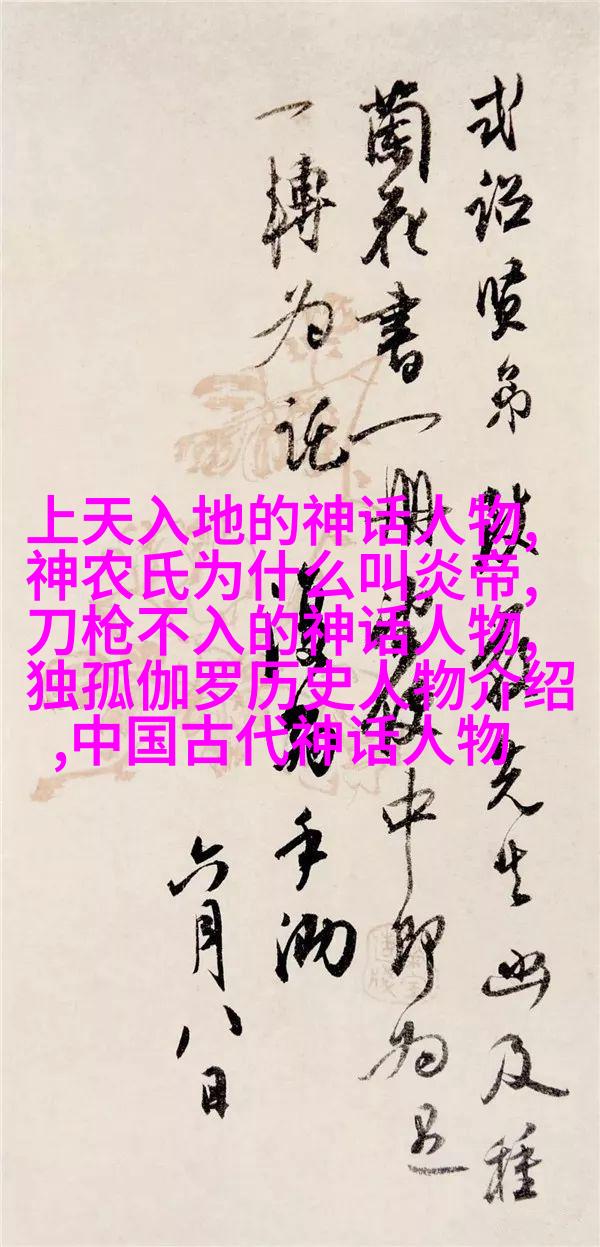 上天入地的神话人物,
神农氏为什么叫炎帝,
刀枪不入的神话人物,
独孤伽罗历史人物介绍
,中国古代神话人物
賢弟 先生函及種
蘭花書一册 中即为
一轉为託 手泐
六月八日